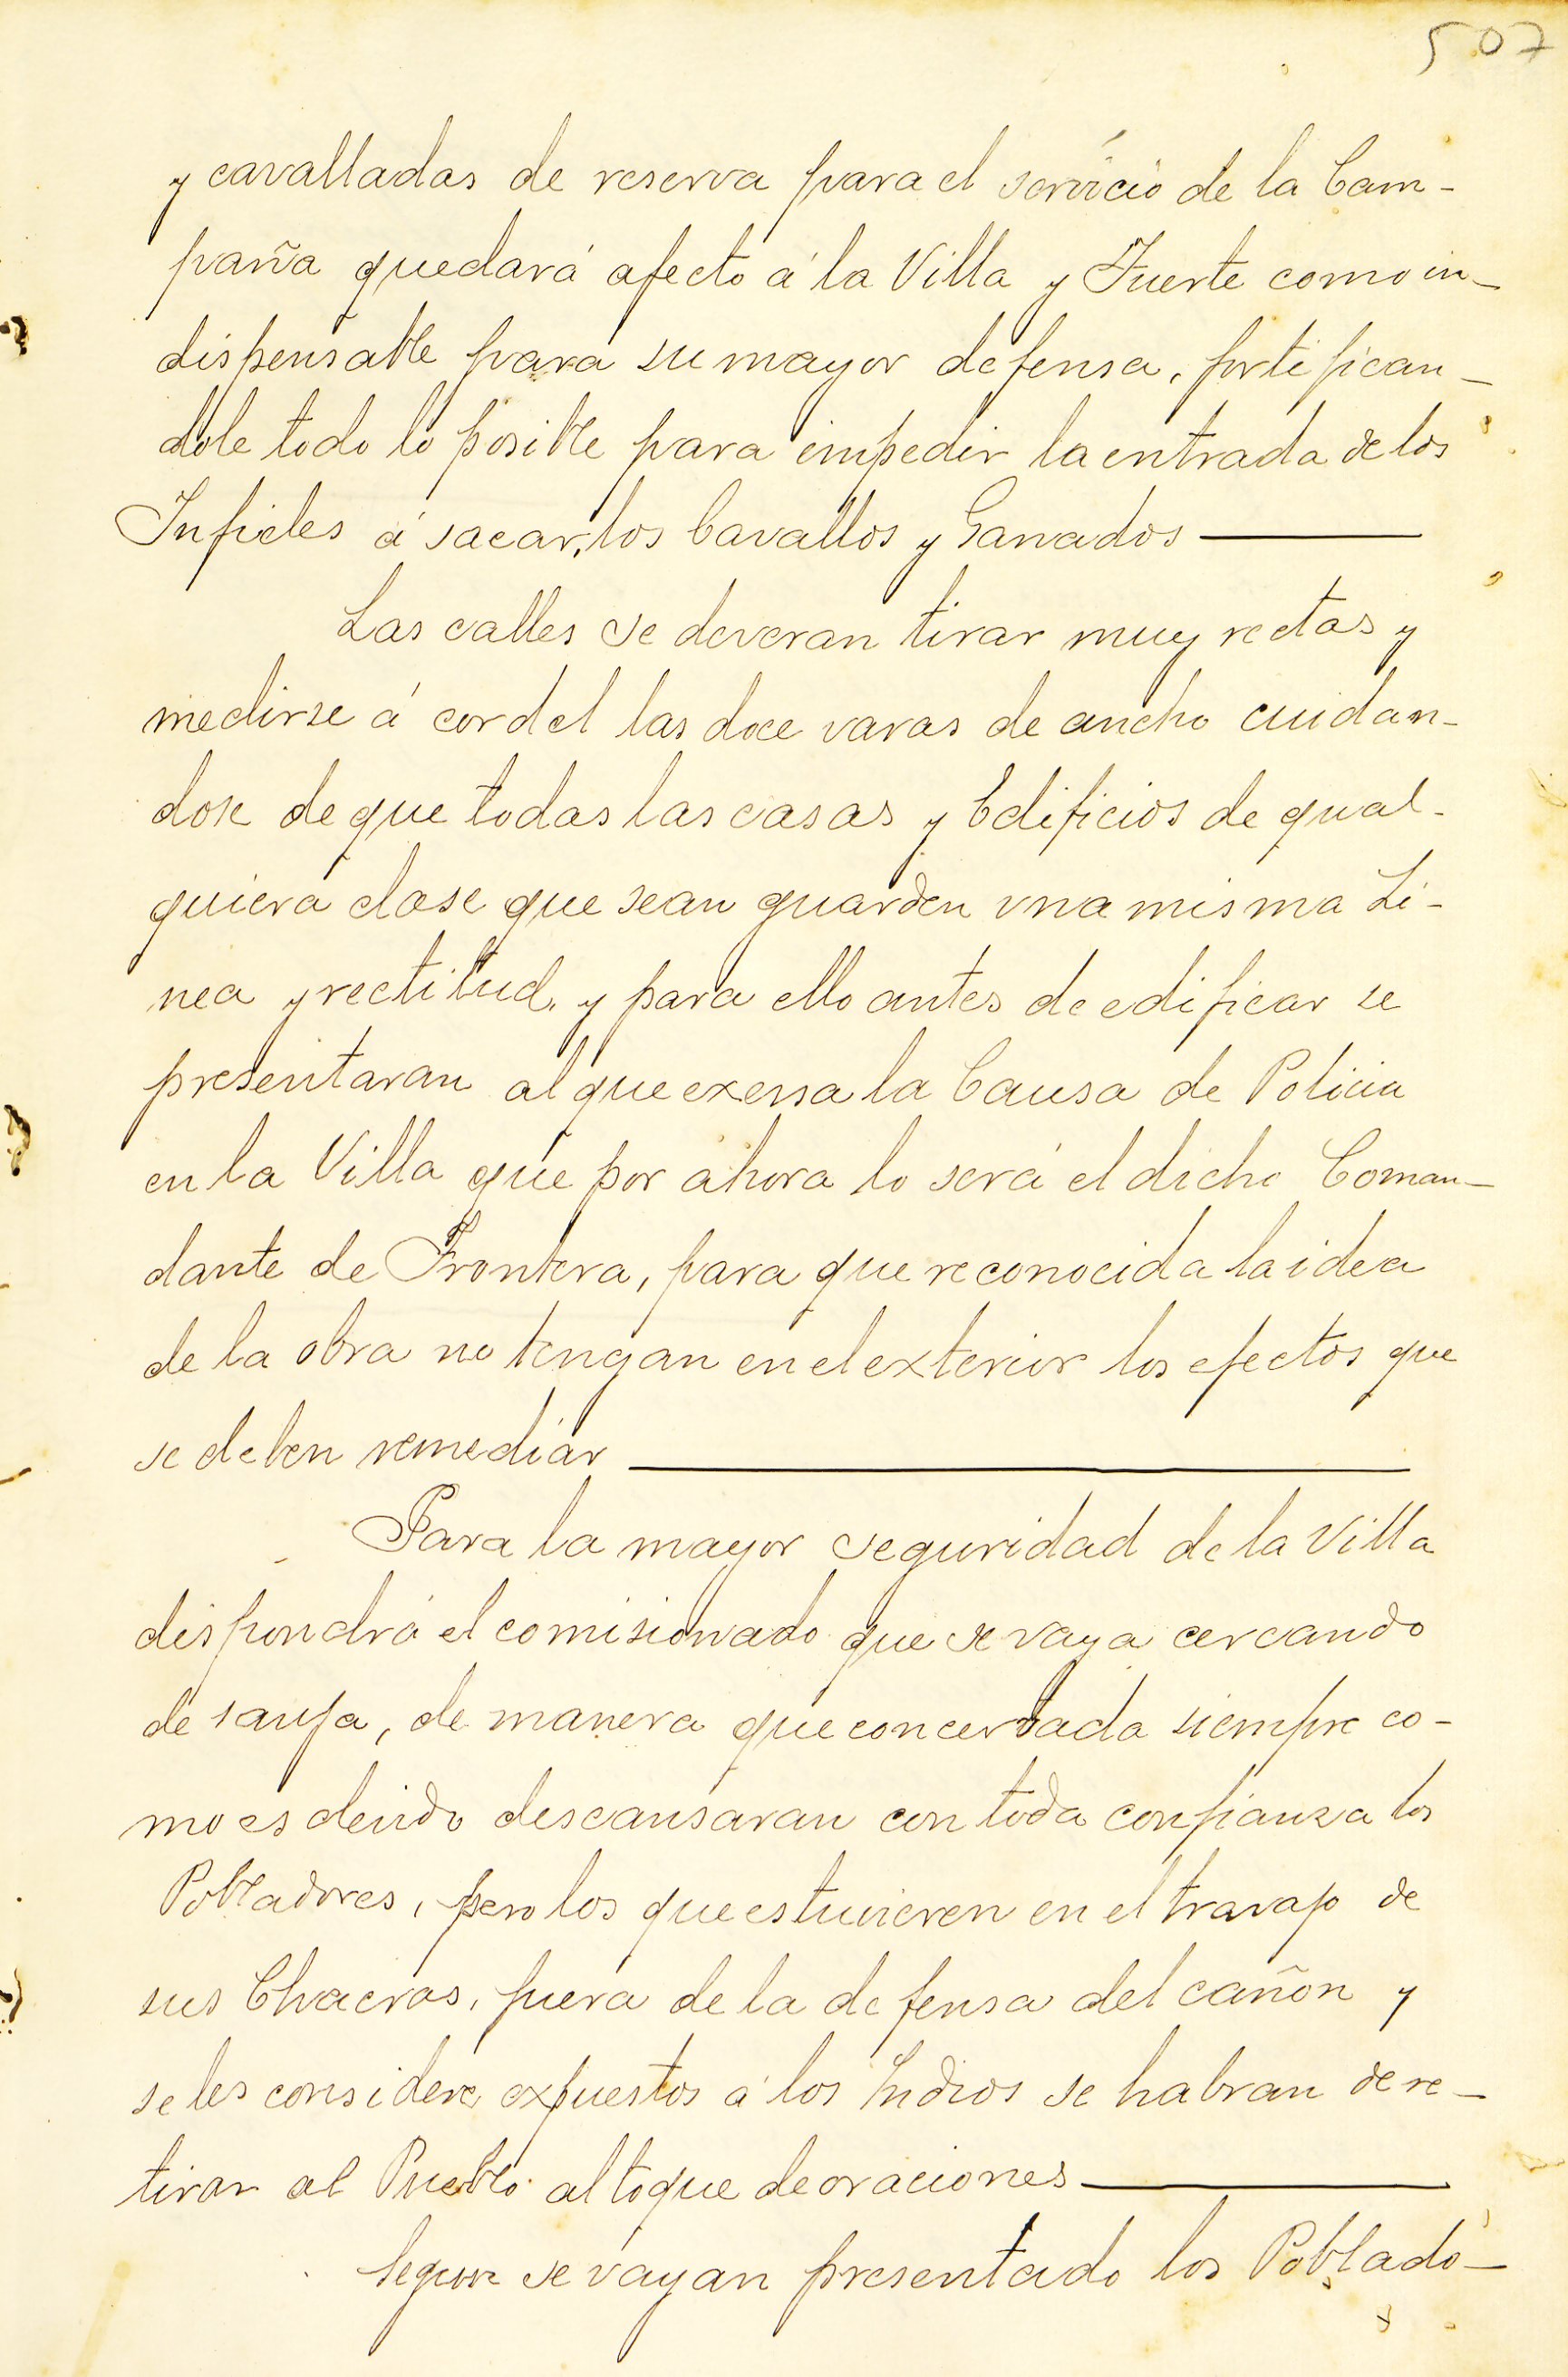 507
y cavalladas de reserva para el servicio de la Cam-
paña quedará afecto á la Villa y Fuerte como in-
dispensable para su mayor defensa, fortifican-
dole todo lo posible para impedir la entrada de los
Infieles á sacar, los Cavallos y Ganados
Las calles se deveran tirar muy rectas y
medirse á cordel las doce varas de ancho cuidan-
dose de que todas las casas y Edificios de qual-
quiera clase que sean guarden vna misma Li-
nea y rectitud, y para ello antes de edificar se
presentaran al que exersa la Causa de Policia
en la Villa que por ahora lo será el dicho Coman-
dante de Frontera, para que reconocida la idea
de la obra no tengan en el exterior los efectos que
se deben remediar
Para la mayor seguridad de la Villa
dispondrá el comisionado que se vaya cercando
de sanja, de manera que concertada siempre co-
mo es devido descansaran con toda confianza los
Pobladores, pero los que estuvieren en el travajo de
sus Chacras, fuera de la defensa del cañon y
se les considere expuestos á los Indios se habran de re-
tirar al Pueblo al toque de oraciones
Segun se vayan presentado los Poblado-